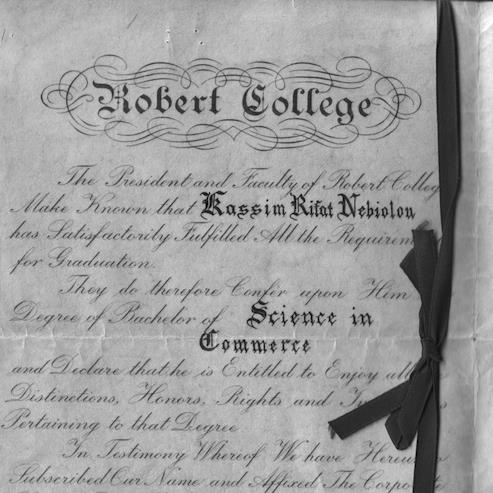 Robert College
The President and Faculty of Robert Colleg
Make Known that Kassim Rifat Nebiolou
has Satisfactorily Fulfilled All the Requirem
for Graduation.
They do therefore Confer upon Him
Degree of Bachelor of Science in
Commerce
and Declare that he is Entitled to Enjoy all
Distinctions, Honors, Rights and
Pertaining to that Degree
In Testimony Whereof We have Hereun
Subscribed Our Name and Affixed The Corpo